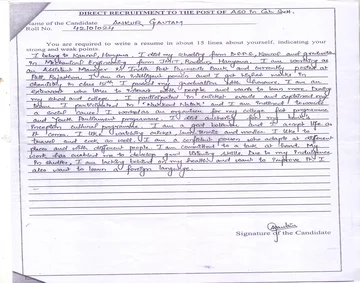 DIRECT RECRUITMENT TO THE POST OF ASO in Govt.
Name of the Candidate ANKUR GAUTAM
Roll No.
You are required to write a resume in about 15 lines about yourself, indicating your
strong and weak points.
I belong to Karnal, Haryana. I did my schooling from Karnal and graduation
in Mechanical Engineering from Haryana. I am working as
an Assistant Manager in India Post Payments Bank and currently posted at
Rajasthan. I am an intelligent person and I got highest marks in
chemistry in class 12th. I passed my graduation with Honours. I am an
extrovert who likes to interact with people and wants to learn more. During
my school and college, I participated in cricket events and captained my
team. I participated in "Nukkad Natak" and I am inclined towards
a social cause. I worked as an organiser for my college fest programme
and Youth Parliament programme. I for my
cultural programme. I am a good listener and I accept life as
it comes. I like watching movies and series. I like to
travel and cook as well. I am a confident person who adapts at different
places and with different people. I am committed to a task at hand. My
work has enabled me to develop good listening skills. Due to my indulgence
in studies, I am lacking behind on my health and want to improve it. I
also want to learn a foreign language.
Signature of the Candidate